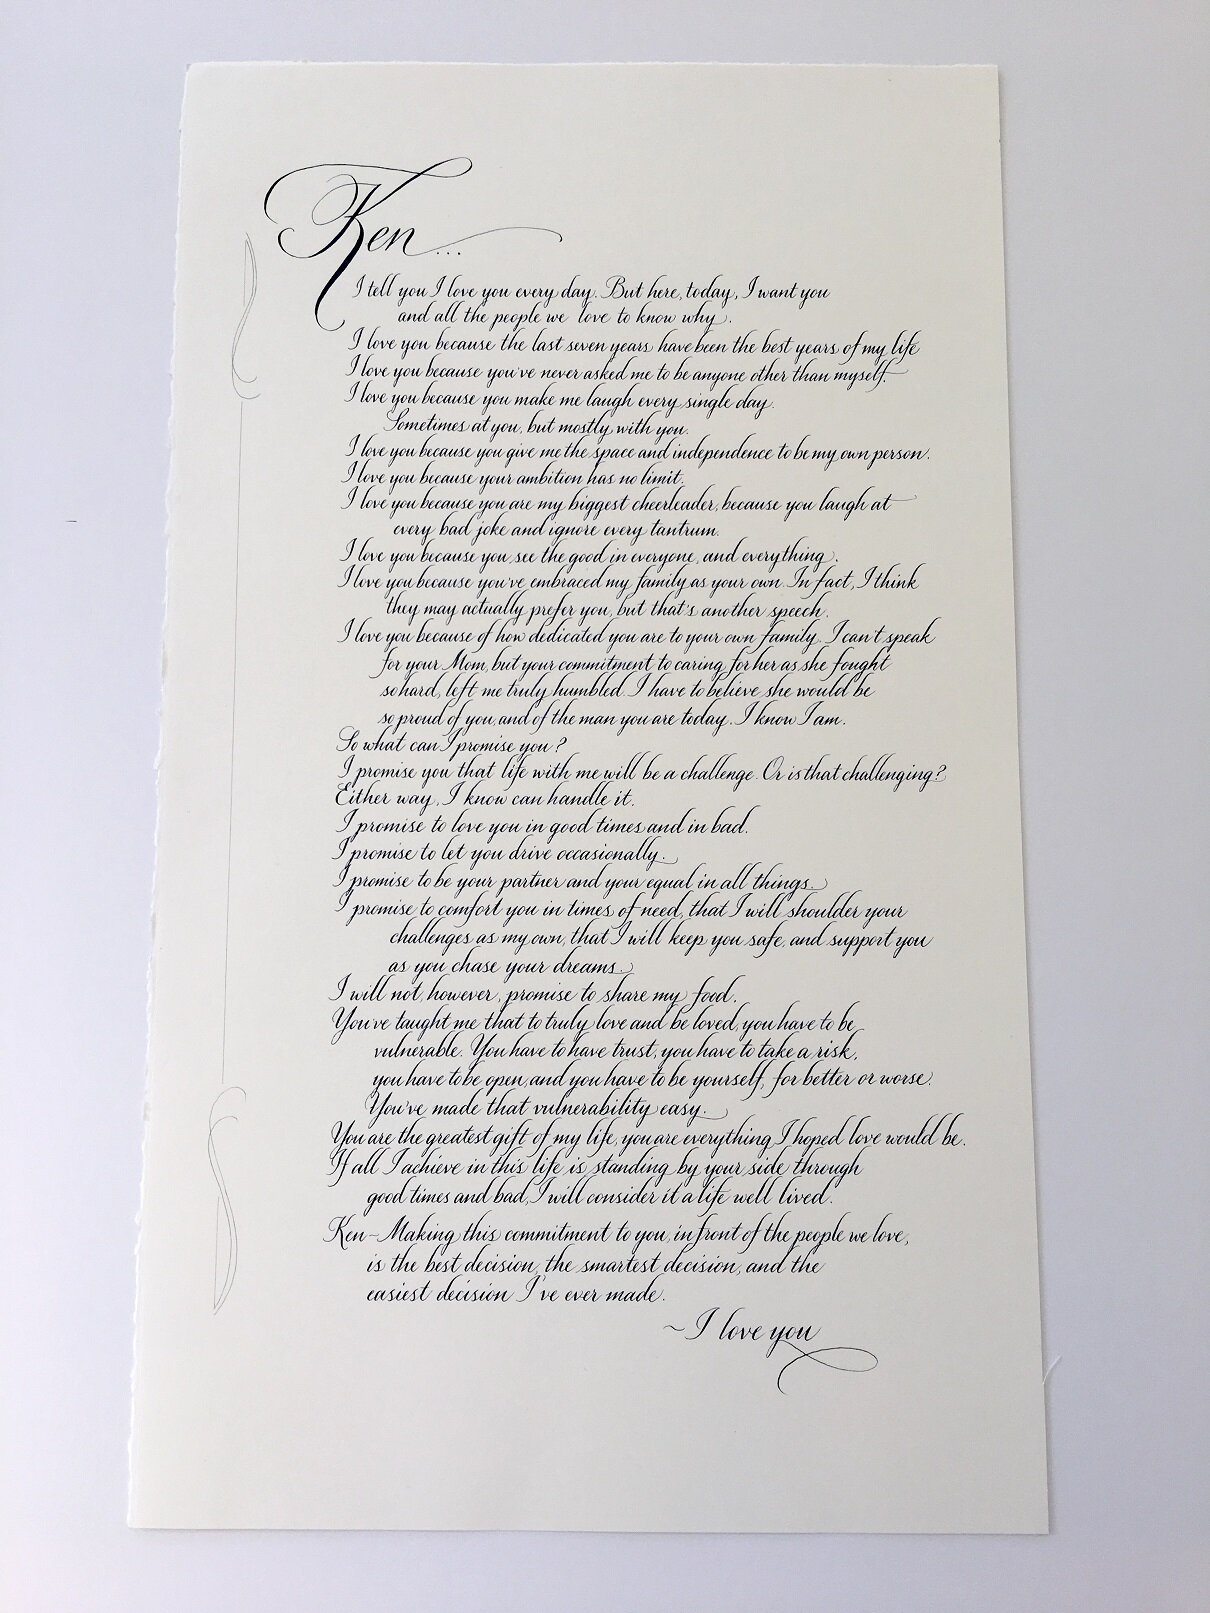 Ken...
I tell you I love you every day. But here, today, I want you
and all the people we love to know why.
I love you because the last seven years have been the best years of my life
I love you because you've never asked me to be anyone other than myself.
I love you because you make me laugh every single day.
Sometimes at you, but mostly with you.
I love you because you give me the space and independence to be my own person.
I love you because your ambition has no limit.
I love you because you are my biggest cheerleader, because you laugh at
every bad joke and ignore every tantrum.
I love you because you see the good in everyone, and everything.
I love you because you've embraced my family as your own. In fact, I think
they may actually prefer you, but that's another speech.
I love you because of how dedicated you are to your own family. I can't speak
for your Mom, but your commitment to caring for her as she fought
so hard, left me truly humbled. I have to believe she would be
so proud of you, and of the man you are today. I know I am.
So what can I promise you?
I promise you that life with me will be a challenge. Or is that challenging?
Either way, I know can handle it.
I promise to love you in good times and in bad.
I promise to let you drive occasionally.
I promise to be your partner and your equal in all things.
I promise to comfort you in times of need, that I will shoulder your
challenges as my own, that I will keep you safe, and support you
as you chase your dreams.
I will not, however, promise to share my food.
You've taught me that to truly love and be loved, you have to be
vulnerable. You have to have trust, you have to take a risk,
you have to be open, and you have to be yourself, for better or worse.
You've made that vulnerability easy.
You are the greatest gift of my life, you are everything I hoped love would be.
If all I achieve in this life is standing by your side through
good times and bad, I will consider it a life well lived.
Ken~Making this commitment to you, in front of the people we love,
is the best decision, the smartest decision, and the
easiest decision I've ever made.
~I love you